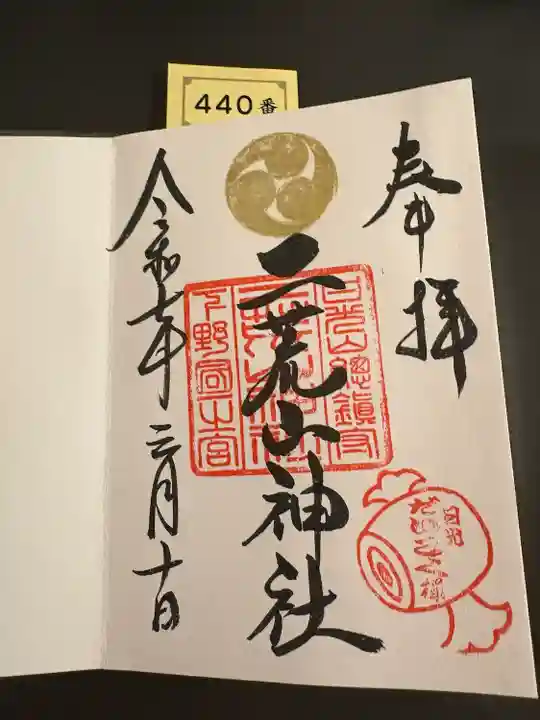 440番
奉拝
日光山總鎮守
二荒山神社
下野國一之宮
二荒山神社
令和七年三月十日
日光
だいこくさま